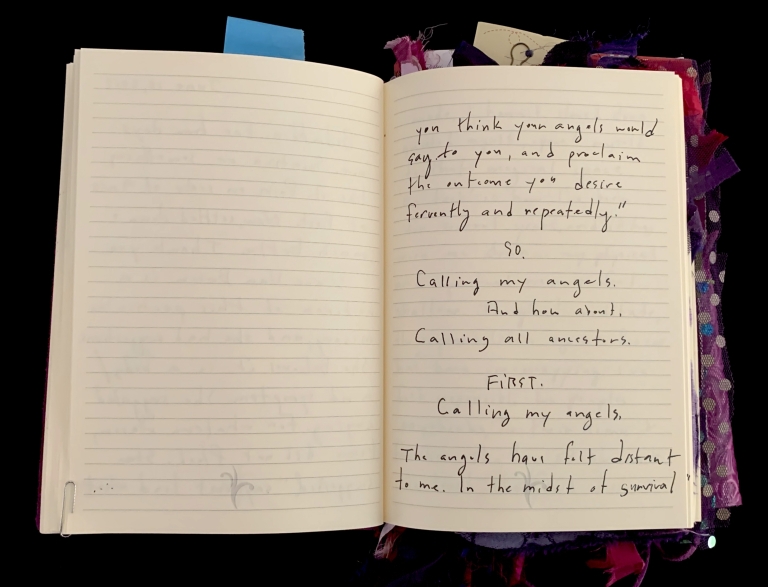 you think your angels would
say to you, and proclaim
the outcome you desire
fervently and repeatedly."
So.
Calling my angels.
And how about,
Calling all ancestors.
FIRST.
Calling my angels.
The angels have felt distant
to me. In the midst of survival